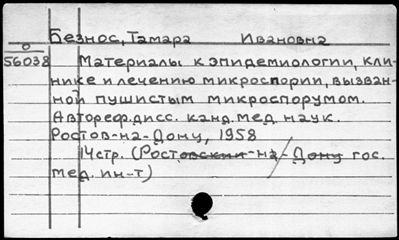 Безнос, Тамара Ивановна
0
56038 Материалы к эпидемиологии, кли-
нике и лечению микроспории, вызван-
ной пушистым микроспорумом.
Автореф. дисс. канд. мед. наук.
Ростов-на-Дону, 1958
14 стр. (Ростовский-на-Дону гос.
мед. ин-т)